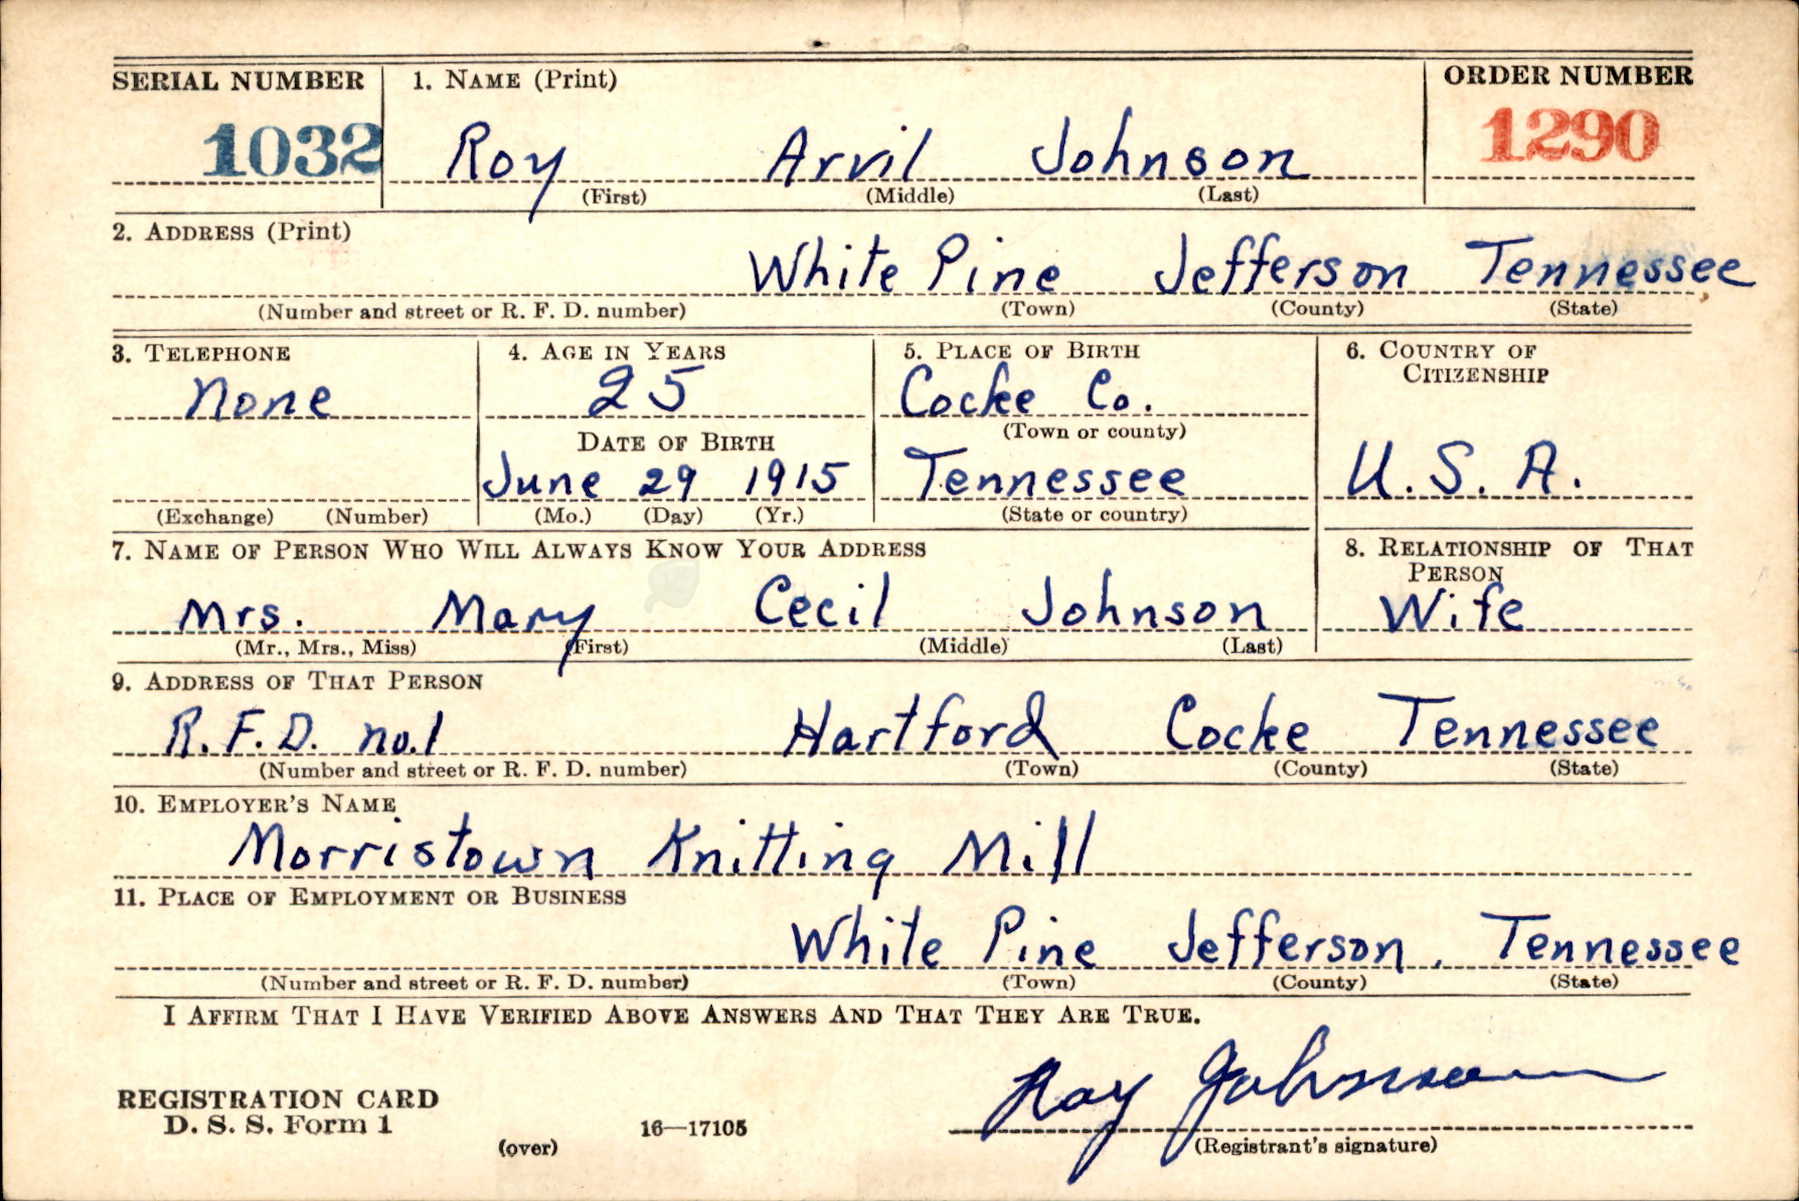 SERIAL NUMBER 1. NAME (Print) ORDER NUMBER
1032 Roy Arvil Johnson 1290
(First) (Middle) (Last)
2. ADDRESS (Print)
White Pine Jefferson Tennessee
(Number and street or R. F. D. number) (Town) (County) (State)
3. TELEPHONE 4. AGE IN YEARS 5. PLACE OF BIRTH 6. COUNTRY OF
CITIZENSHIP
None 25 Cocke Co.
DATE OF BIRTH (Town or county)
June 29 1915 Tennessee U. S. A.
(Exchange) (Number) (Mo.) (Day) (Yr.) (State or country)
7. NAME OF PERSON WHO WILL ALWAYS KNOW YOUR ADDRESS 8. RELATIONSHIP OF THAT
PERSON
Mrs. Mary Cecil Johnson Wife
(Mr., Mrs., Miss) (First) (Middle) (Last)
9. ADDRESS OF THAT PERSON
R. F. D. no. 1 Hartford Cocke Tennessee
(Number and street or R. F. D. number) (Town) (County) (State)
10. EMPLOYER'S NAME
Morristown Knitting Mill
11. PLACE OF EMPLOYMENT OR BUSINESS
White Pine Jefferson, Tennessee
(Number and street or R. F. D. number) (Town) (County) (State)
I AFFIRM THAT I HAVE VERIFIED ABOVE ANSWERS AND THAT THEY ARE TRUE.
Roy Johnson
REGISTRATION CARD
D. S. S. Form 1 16—17105
(over) (Registrant's signature)